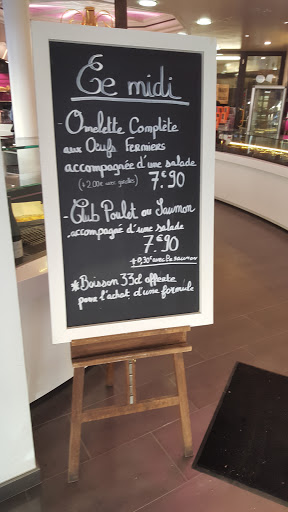 Ce midi
- Omelette Complète
aux Oeufs Fermiers
accompagnée d'une salade
7€90
- Club Poulet ou Saumon
accompagné d'une salade
7€90
+0,30€ avec le saumon
* Boisson 33cl offerte
pour l'achat d'une formule